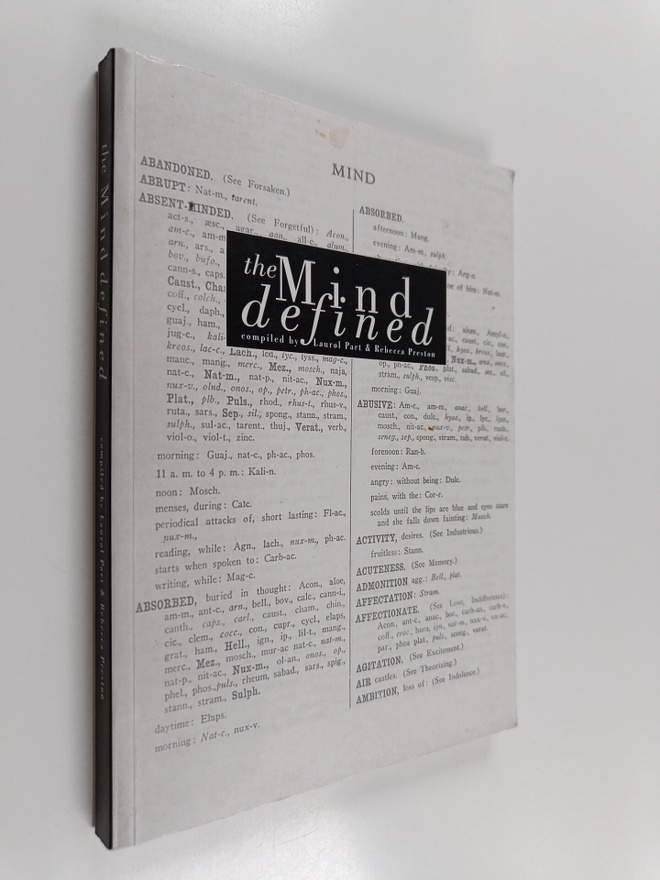 the Mind defined compiled by Laurol Part & Rebecca Preston
MIND
ABANDONED. (See Forsaken.)
ABRUPT: Nat-m., tarent.
ABSENT-MINDED. (See Forgetful): Acon.,
act-s., æsc., agar., aan., all-c., alum.,
am-c., am-m
arn., ars., a
bov., bufo.,
cann-s., caps.
Caust., Cha
coff., colch.,
cycl., daph.,
guaj., ham.,
jug-c., kali-
kreos., lac-c., Lach., led., lyc., lyss., mag-c.,
manc., mang., merc., Mez., mosch., naja,
nat-c., Nat-m., nat-p., nit-ac., Nux-m.,
nux-v., olnd., onos., op., petr., ph-ac., phos.,
Plat., plb., Puls., rhod., rhus-t., rhus-v.,
ruta., sars., Sep., sil., spong., stann., stram.,
sulph., sul-ac., tarent., thuj., Verat., verb.,
viol-o., viol-t., zinc.
morning: Guaj., nat-c., ph-ac., phos.
11 a. m. to 4 p. m.: Kali-n.
noon: Mosch.
menses, during: Calc.
periodical attacks of, short lasting: Fl-ac.,
nux-m.,
reading, while: Agn., lach., nux-m., ph-ac.
starts when spoken to: Carb-ac.
writing, while: Mag-c.
ABSORBED, buried in thought: Acon., aloe,
am-m., ant-c., arn., bell., bov., calc., cann-i.,
canth., caps., carl., caust., cham., chin.,
cic., clem., cocc., con., cupr., cycl., elaps,
grat., ham., Hell., ign., ip., lil-t., mang.,
merc., Mez., mosch., mur-ac nat-c., nat-m.,
nat-p., nit-ac., Nux-m., ol-an., onos., op.,
phel., phos., puls., rheum, sabad., sars., spig.,
stann., stram., Sulph.
daytime: Elaps.
morning: Nat-c., nux-v.
ABSORBED.
afternoon: Mang.
evening: Am-m., sulph.
: Arg-n.
ne of him: Nat-m.
the Mind
defined
compiled by Laurol Part & Rebecca Preston
op., ph-ac., Phos., plat., sabad., sec., sil.,
stram., sulph., verap., visc.
morning: Guaj.
ABUSIVE: Am-c., am-m., anac., bell., bor.,
caust., con., dulc., hyos., ip., lyc., lyss.,
mosch., nit-ac., nux-v., petr., plb., ranb.,
seneg., sep., spong., stram., tub., verat., viol-t.
forenoon: Ran-b.
evening: Am-c.
angry: without being: Dulc.
pains, with the: Cor-r.
scolds until the lips are blue and eyes stare
and she falls down fainting: Mosch.
ACTIVITY, desires. (See Industrious.)
fruitless: Stann.
ACUTENESS. (See Memory.)
ADMONITION agg.: Bell., plat.
AFFECTATION: Stram.
AFFECTIONATE. (See Love, Indifference):
Acon., ant-c., anac., bor., carb-an., carb-v.,
coff., croc., hura, ign., nat-m., nux-v., ox-ac.,
par., phos plat., puls., seneg., verat.
AGITATION. (See Excitement.)
AIR castles. (See Theorizing.)
AMBITION, loss of: (See Indolence.)